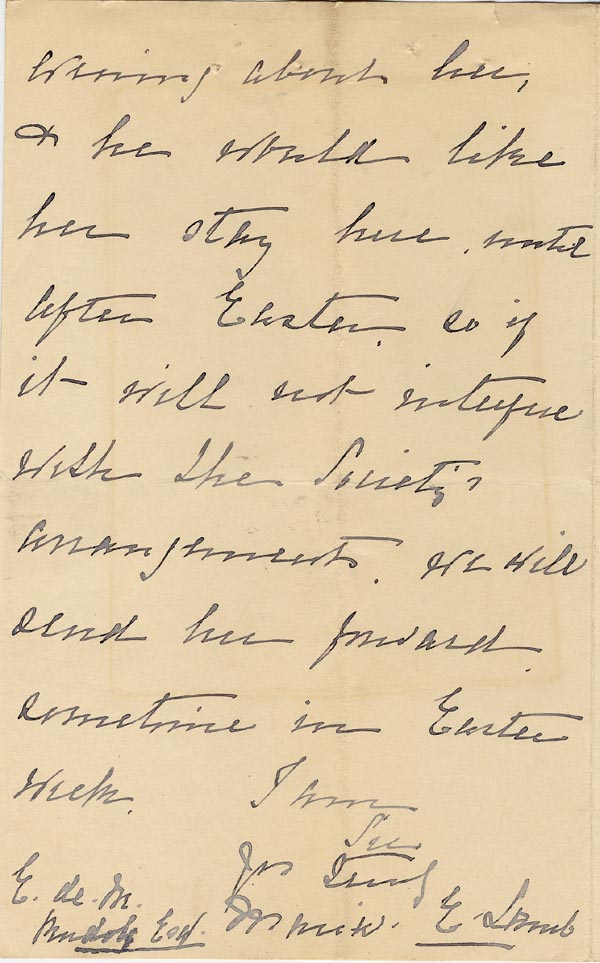 evening about her,
& he would like
her stay here until
after Easter. so if
it will not interfere
with the Society's
arrangements. we will
send her forward
sometime in Easter
week. I am
Sir
Yrs Truly
E. de. M.
Rudolf Esq. E Lamb